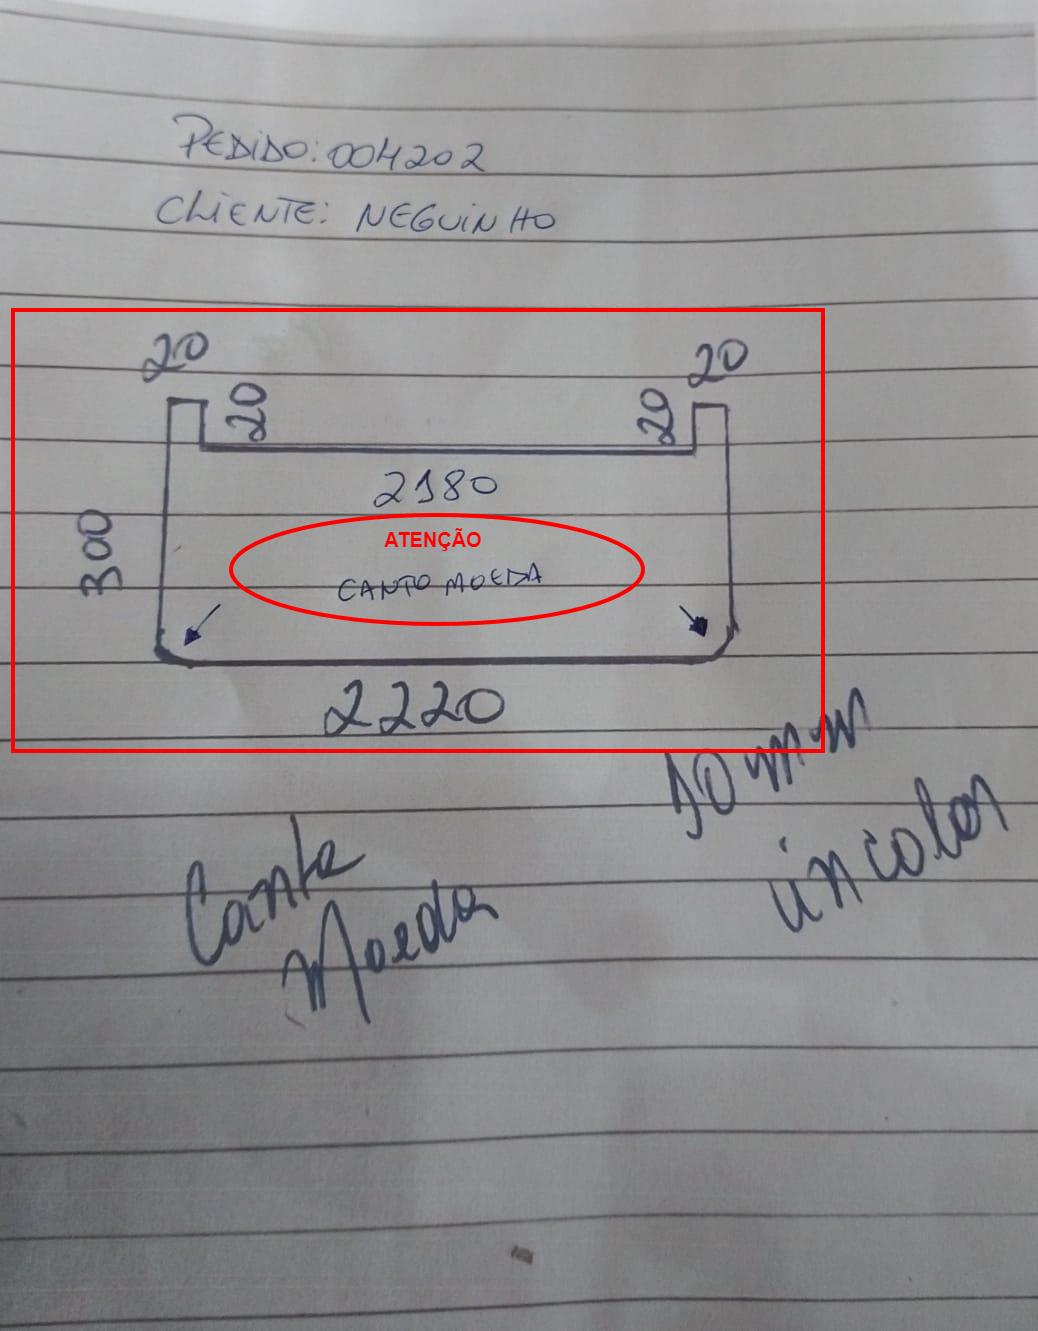 PEDIDO: 004202
CLIENTE: NEGUINHO
20
20
20
20
2180
300
ATENÇÃO
CANTO MOEDA
2220
10 mm
incolor
Canto
Moeda